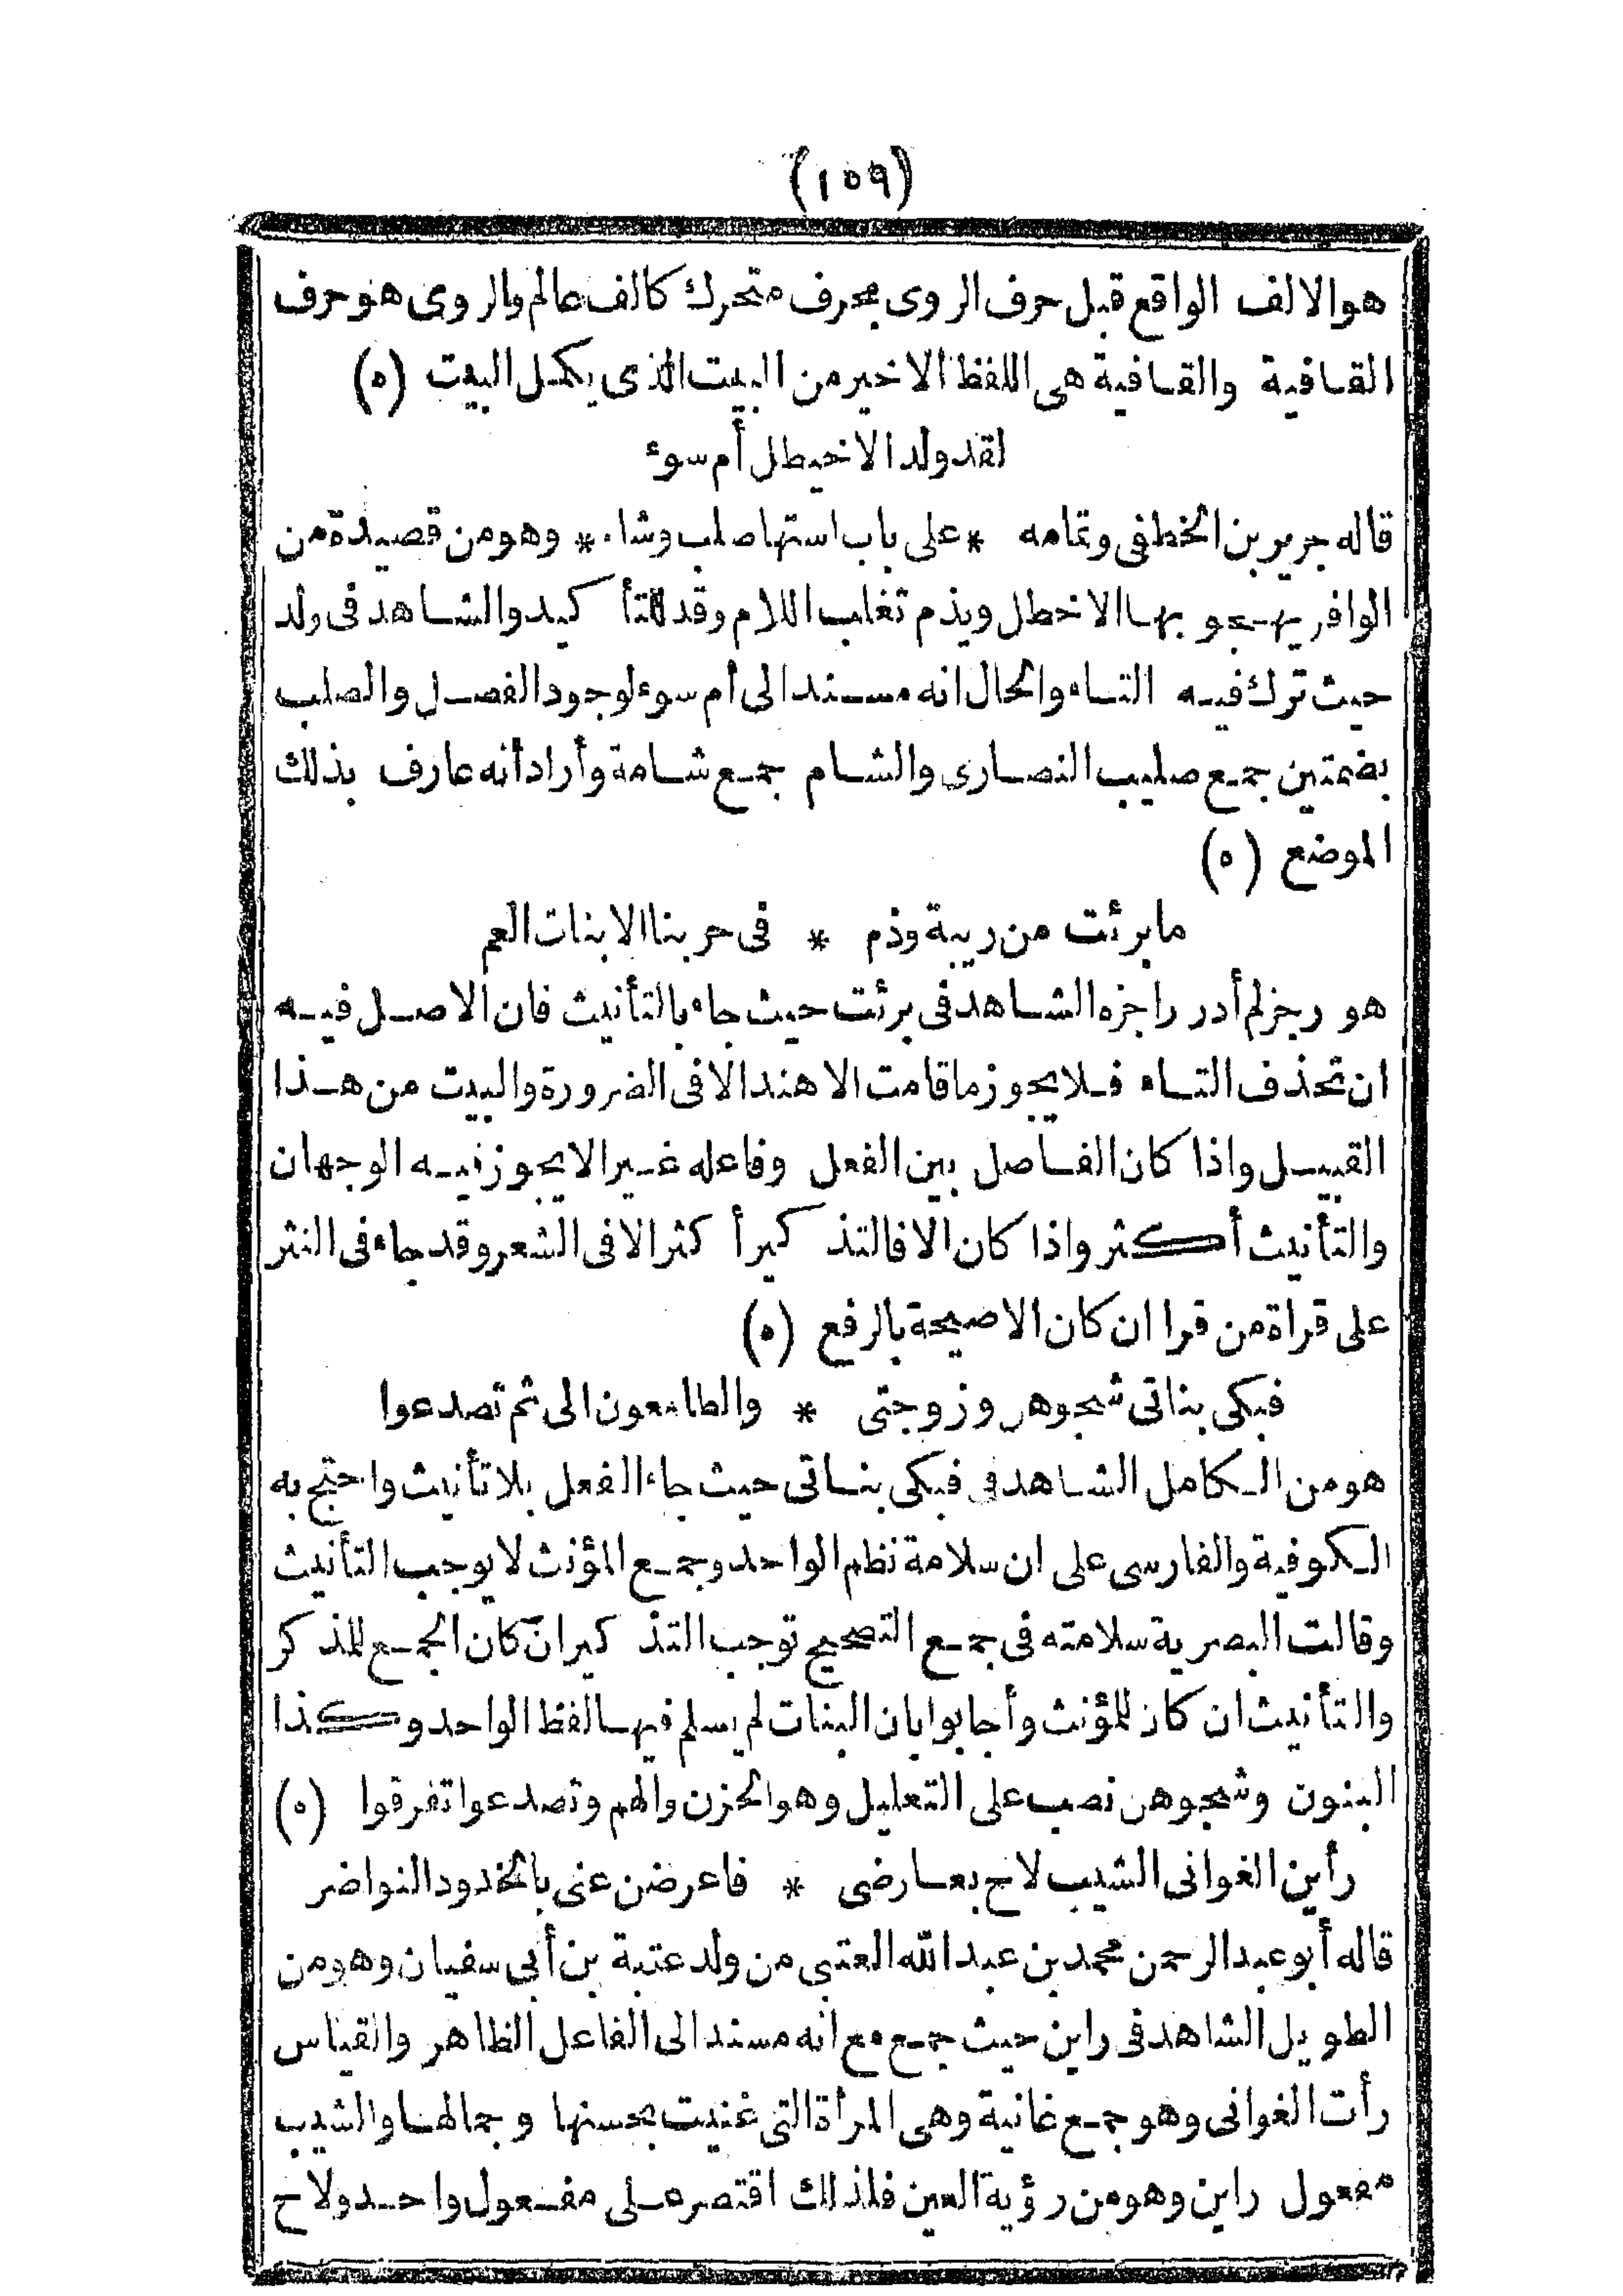 (١٥٩)
هو الالف الواقع قبل حرف الروى بحرف متحرك كالف عالم والروى هو حرف
القافية والقافية هى اللفظ الاخير من البيت الذى يكمل البيت (ه)
لقد ولد الاخيطل أم سوء
قاله جرير بن الخطفى وتمامه * على باب استها صلب وشاء * وهو من قصيدة من
الوافر يهجو بها الاخطل ويذم تغلب اللام وقد للتأكيد والشاهد فى ولد
حيث ترك فيه التاء والحال انه مسند الى أم سوء لوجود الفصل والصلب
بضمتين جمع صليب النصارى والشام جمع شامة وأراد أنه عارف بذلك
الموضع (ه)
ما برئت من ريبة وذم * فى حربنا الا بنات العم
هو رجز لم أدر راجزه الشاهد فى برئت حيث جاء بالتأنيث فان الاصل فيه
ان تحذف التاء فلا يجوز ما قامت الا هند الا فى الضرورة والبيت من هذا
القبيل واذا كان الفاصل بين الفعل وفاعله غير الا يجوز فيه الوجهان
والتأنيث أكثر واذا كان الا فالتذكير أكثر الا فى الشعر وقد جاء فى النثر
على قراة من قرا ان كان الا صيحة بالرفع (ه)
فبكى بناتى شجوهن وزوجتى * والطامعون الى ثم تصدعوا
هو من الكامل الشاهد فى فبكى بناتى حيث جاء الفعل بلا تأنيث واحتج به
الكوفية والفارسى على ان سلامة نظم الواحد وجمع المؤنث لا يوجب التأنيث
وقالت البصرية سلامته فى جمع التصحيح توجب التذكير ان كان الجمع للمذكر
والتأنيث ان كان للمؤنث وأجابوا بان البنات لم يسلم فيها لفظ الواحد وكذا
البنون وشجوهن نصب على التعليل وهو الحزن والهم وتصدعوا تفرقوا (ه)
رأين الغوانى الشيب لاح بعارضى * فاعرضن عنى بالخدود النواضر
قاله أبو عبد الرحمن محمد بن عبد الله العتبى من ولد عتبة بن أبى سفيان وهو من
الطويل الشاهد فى راين حيث جمع مع انه مسند الى الفاعل الظاهر والقياس
رأت الغوانى وهو جمع غانية وهى المرأة التى غنيت بحسنها وجمالها والشيب
مفعول راين وهو من رؤية العين فلذلك اقتصر على مفعول واحد ولاح